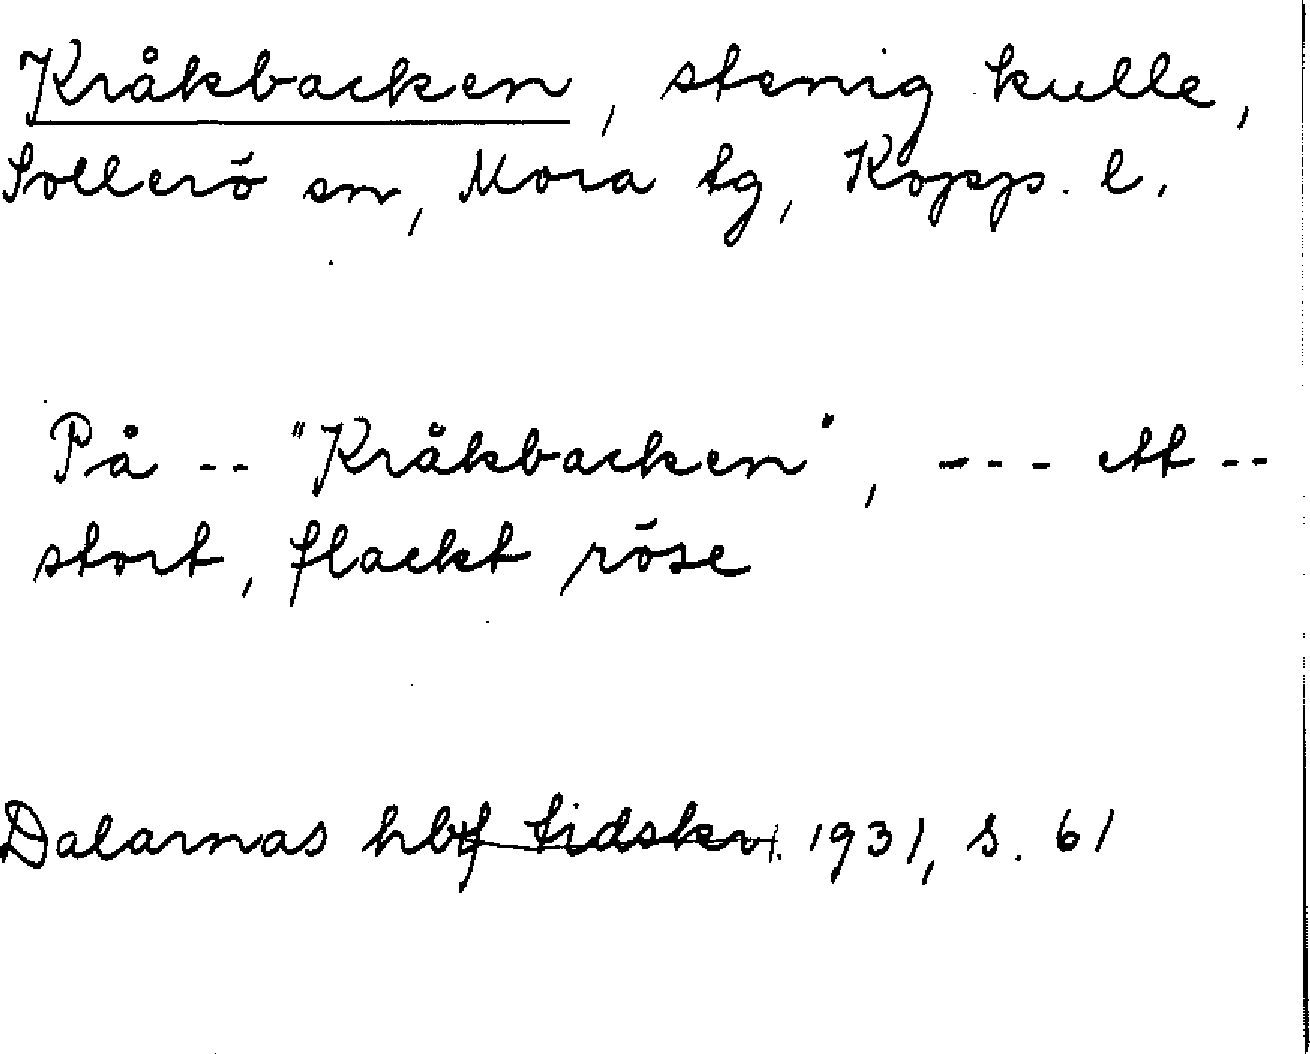 Kråkbacken, stenig kulle,
Sollerö sn, Mora tg, Kopp. l.
På -- "Kråkbacken", --- ett --
stort, flackt röse
Dalarnas hbf tidskr. 1931, s. 61